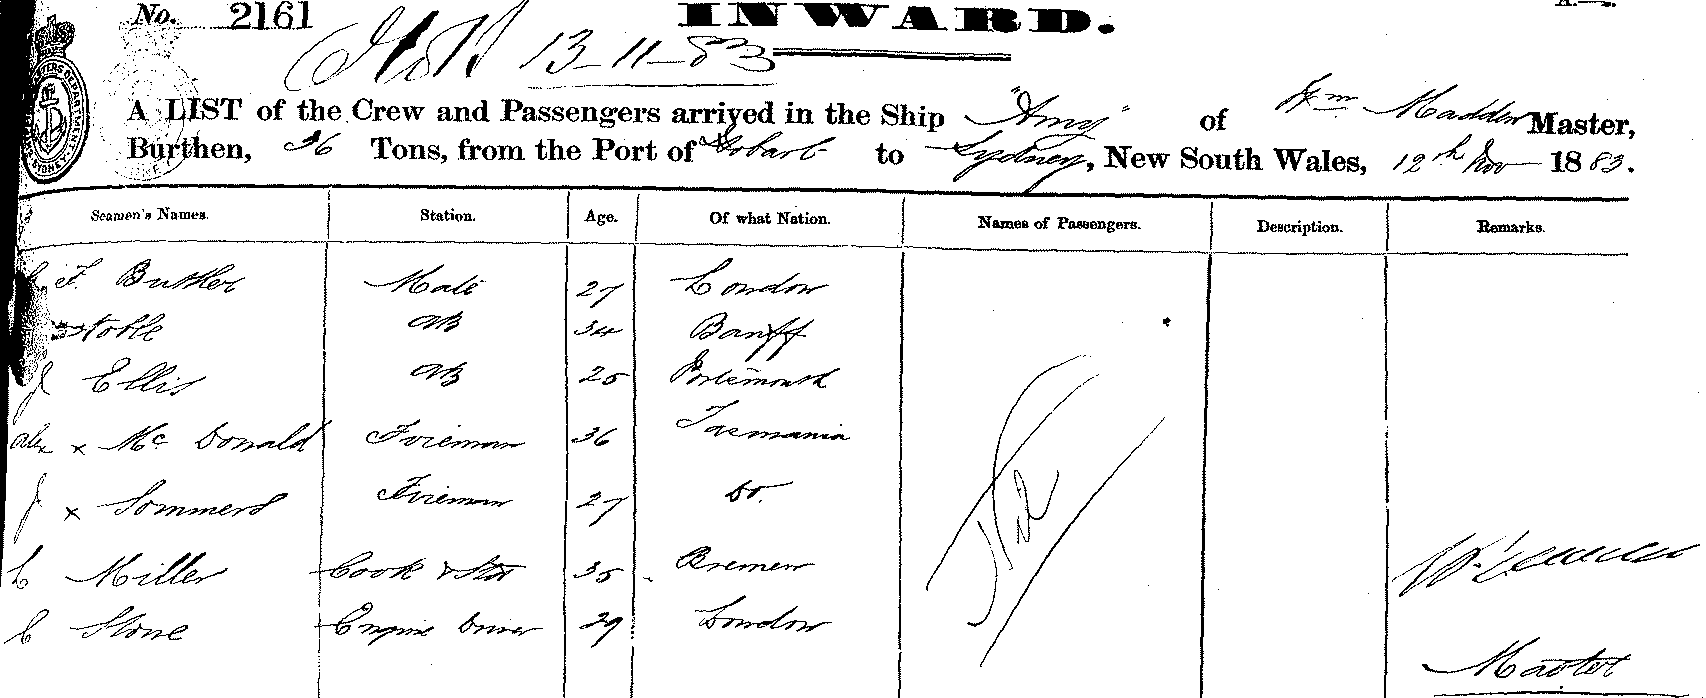 No. 2161 INWARD.
13-11-83
A LIST of the Crew and Passengers arrived in the Ship "Amy" of Wm Madden Master,
Burthen, 36 Tons, from the Port of Hobart to Sydney, New South Wales, 12th Nov 1883.
Seamen's Names. Station. Age. Of what Nation. Names of Passengers. Description. Remarks.
F. Butler Mate 27 London
Noble AB 34 Banff
J Ellis AB 25 Portsmouth
Alex x Mc Donald Fireman 36 Tasmania
J x Sommers Fireman 27 Do.
Nil
L Miller Cook & Std 35 Bremen
C Stone Engine Driver 29 London
Master